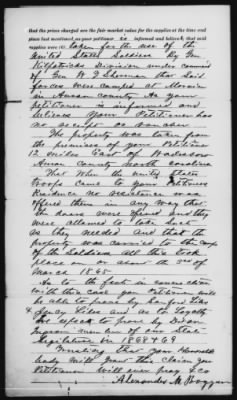 that the prices charged are the fair market value for the supplies at the time and
place last mentioned, as your petitioner is informed and believes; that said
supplies were (4) taken for the use of the
United States Soldiers By Gen
Kilpatricks division under command
of Gen W T Sherman that Said
forces were camped at Morvin
in Anson county As your
petitioner is informed and
believes Your Petitioner has
no receipt or voucher
The property was taken from
the premises of your Petitioner
12 miles East of Wadesboro
Anson County North Carolina
That When the United States
troops came to your Petitioners
residence no resistance was
offered them in any way that
the doors were opened and they
were allowed to take such
as they needed And that the
property was carried to the camp
of the Soldiers all this took
place on or about the 3rd of
March 1865
As to the facts in connection
with this case your Petitioner will
be able to prove by Sanford Liles
& Henry Liles and as to Loyalty
we expect to prove by
Ingram member of our State
Legislature in 1868 & 69
Trusting that your Honorable
body will grant this claim your
Petitioner will ever pray &c
Alexander M. Boggan